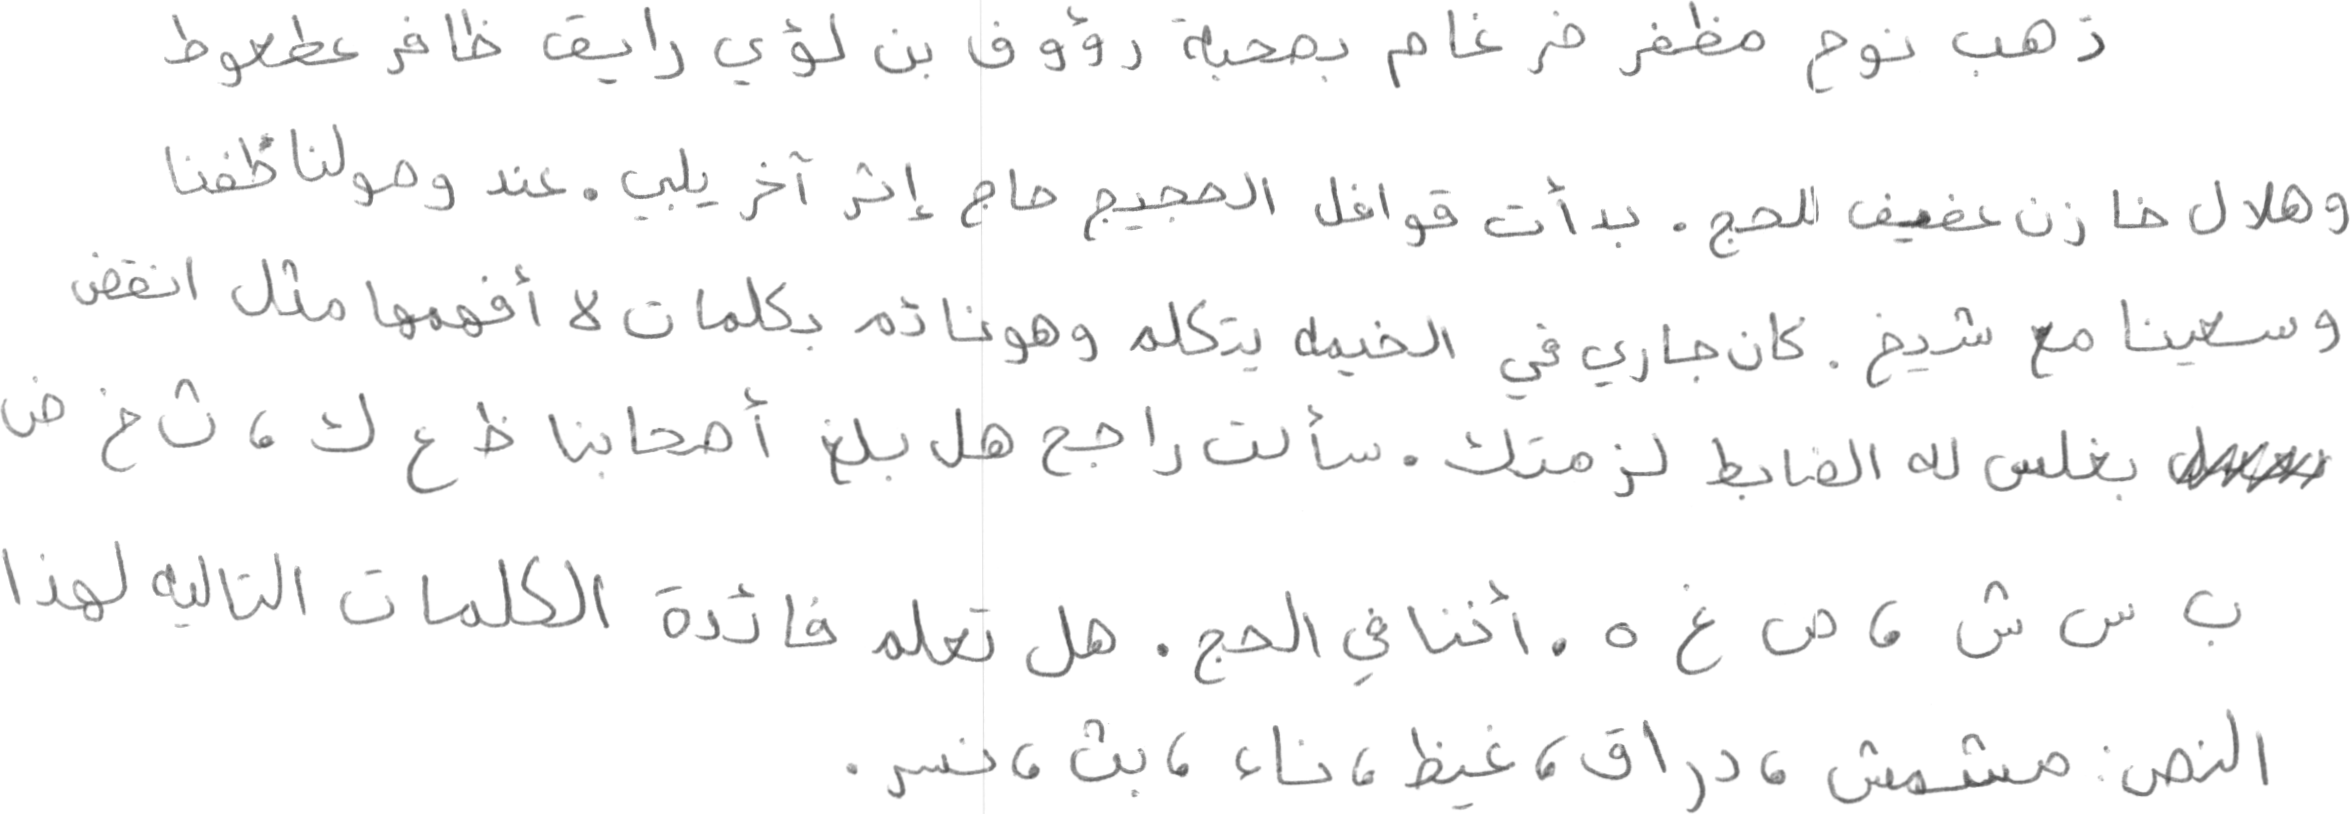 ذهب نوح مظفر ضرغام بصحبة رؤوف بن لؤي رايق ظافر عطعوط
وهلال خازن عفيف للحج. بدأت قوافل الحجيج حاج إثر آخر يلبي. عند وصولنا طفنا
وسعينا مع شيخ. كان جاري في الخيمه يتكلم وهو نائم بكلمات لا أفهمها مثل انقض
بغلس له الضابط لزمتك. سألت راجح هل بلغ أصحابنا ظ ع ك، ث خ ض
ب س ش، ص غ ه. أثننا في الحج. هل تعلم فائدة الكلمات التاليه لهذا
النص: مشمش، دراق، غيظ، ناء، بث، نسر.